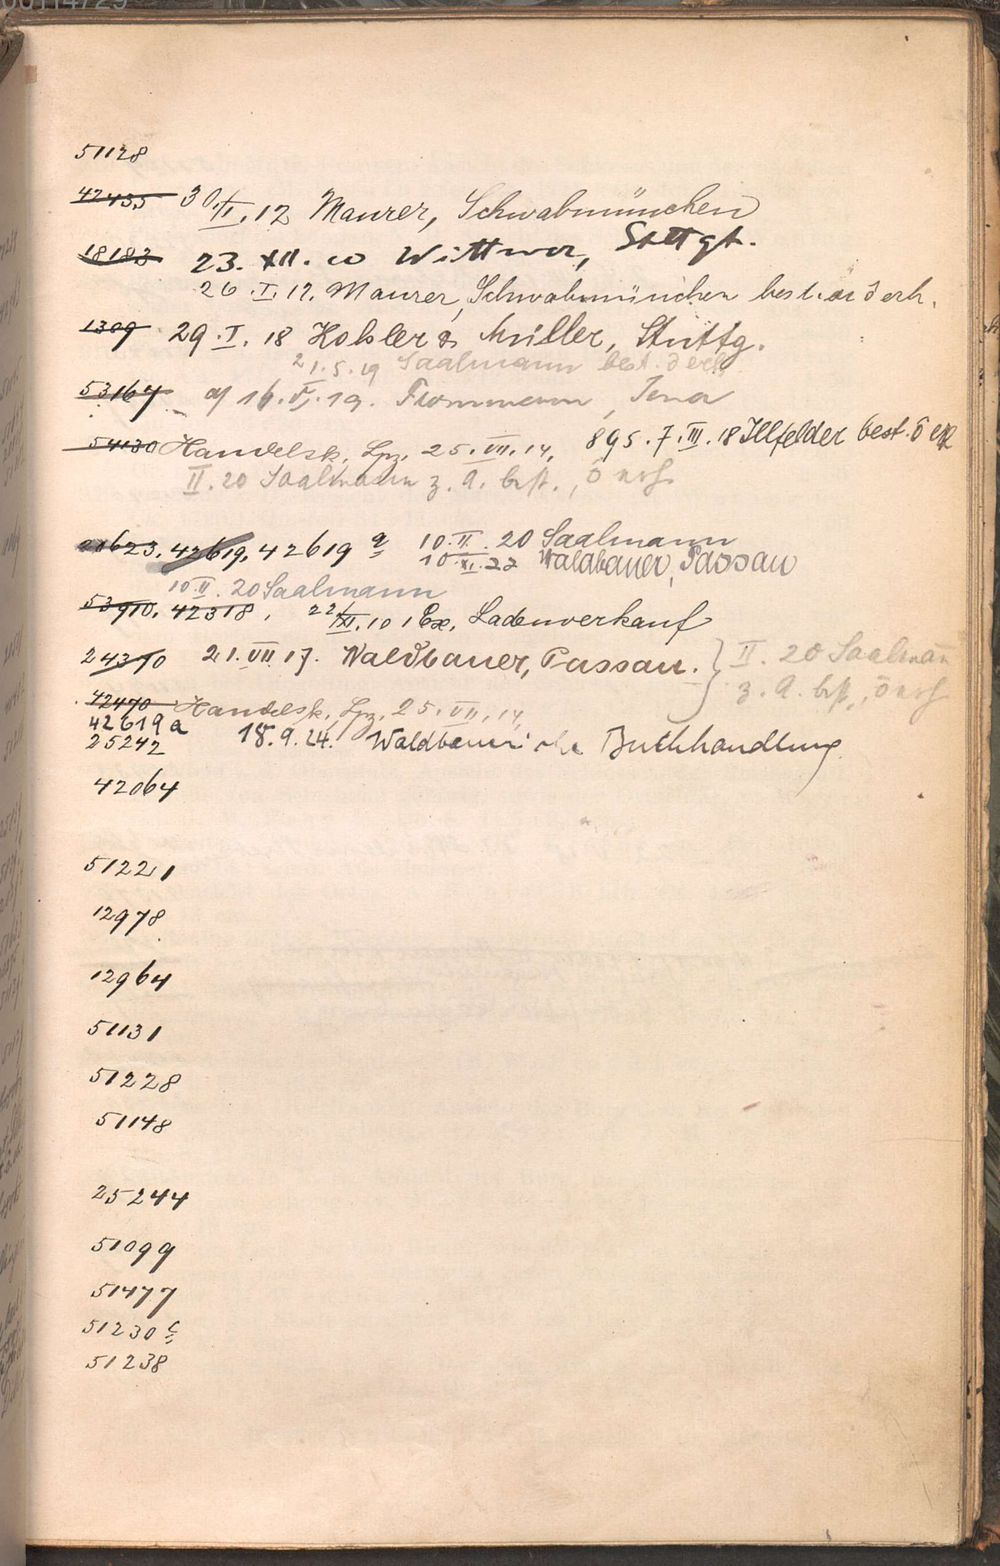 51128
42435 30./I.12 Maurer, Schwabmünchen
18183 23. XII. 10 Wittwer, Stuttgt.
26.I.12. Maurer, Schwabmünchen best.
1309 29.I.18 Hobler & Müller, Stuttg.
21.5.19 Saalmann best.
53164 16.V.19. Frommann, Jena
54130 Handelsk. Lpz. 25.VII.14, 895.7.III.18 Illfelder best.
II.20 Saalmann z. A. best.,
42619, 42619 a 10.II.20 Saalmann
10.XI.22 Waldbauer, Passau
10.II.20 Saalmann
53910, 42318, 22/XI.10 1 Ex. Ladenverkauf
24370 21.VII 17. Waldbauer, Passau. } II.20 Saalmann
z. A. best.,
42470 Handelsk. Lpz. 25.VII.14
42619a
25242 18.9.24. Buchhandlung
42064
51221
12978
12964
51131
51228
51148
25244
51099
51477
51230 c
51238